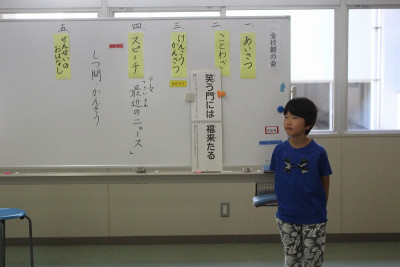 全校朝の会
一、
あいさつ
二、
ことわざ
笑う門には
福来たる
三、
けんこう
かんさつ
四、
スピーチ
テーマ
さいきん
「最近のニュース」
しつ問 かんそう
五、
せんせいの
おはなし